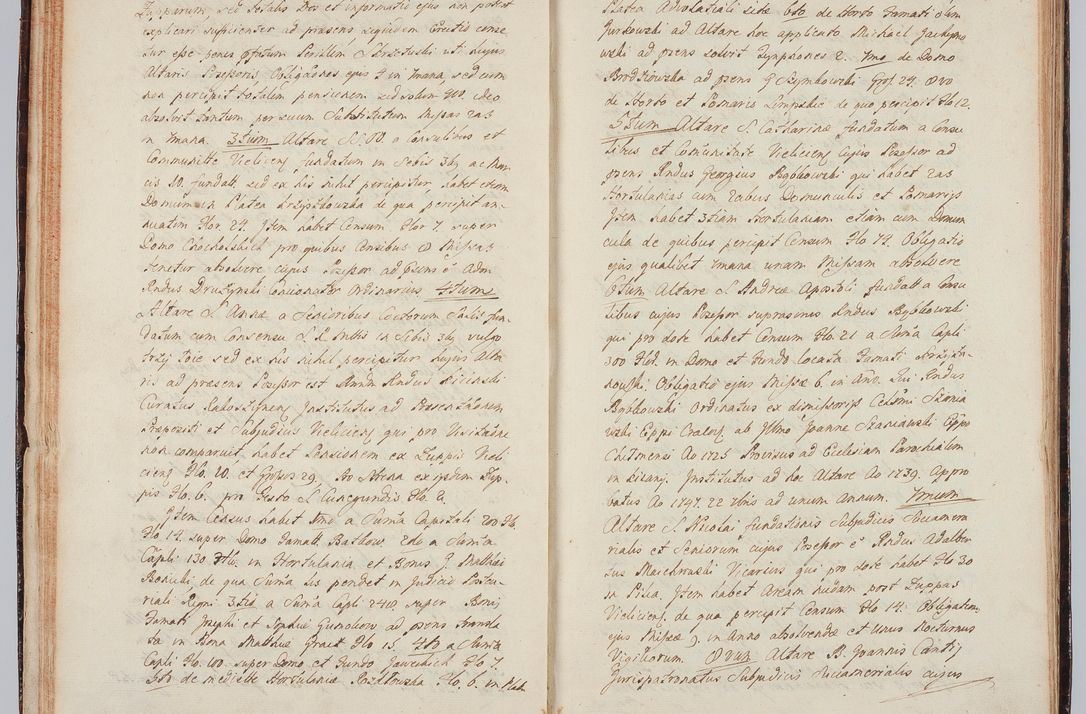 Zupparum, sed totalis Dos et informatio ejus non potest
explicari sufficienter ad præsens siquidem Erectio conse
tur esse penes
Altaris Possessoris Obligationes ejus 4 in Hmana, sed cum
non percipit totalem pensionem sed solum 40. ideo
absolvit tantum per suum Substitutum Missas 2as
in Hmana. 3tium Altare a Consulibus et
Communitte Vieliciens fundatum in Sebis 36, ac Mar
cis 10. fundatt. sed ex his nihil percipitur, habet etiam
Domum in Platea de qua percipit an-
nuatim Flor. 24. Item habet Censum Flor 7. super
Domo pro quibus Censibus Missas
tenetur absolvere cujus Possessor ad Psens e Adm
Rndus Druzynski Concionator Ordinarius 4tum
Altare S. Annæ a Senioribus Coctorum Salis fun-
datum cum Consensu in Sebis 36, vulgo
sed ex his nihil percipitur hujus Alta
ris ad præsens Possessor est Adm Rndus Kicinski
Curatus Institutus ad Præsentationem
Præpositi et Subjudicis Vieliciens qui pro Visitatne
non comparuit, habet Pensionem ex Zuppis Vieli
ciens Flo. 20. et Gross 29. Pro Avena ex ijsdem Zup-
pis Flo. 6. pro Festo S. Cunegundis Flo. 2.
Item Census habet 1mo a Suma Capitali 200 Flo.
Flo 14. super Domo Famatt. 2do a Suma
Capli 130 Flo. in Hortulania et Bonis J. Matthæi
de qua Suma Lis pendet in Judicio
riali Regni 3tio a Suma Capli super Bonis
Famati Josephi et ad psens transla
ta in Bona Matthiæ Flo 13. 4to a Suma
Capli Flo. 100. super Domo et Fundo Flo 7.
5to de medietate Hortulaniæ Flo. 6. in Plat
Platea Advocatiali sitæ 6to de Horto Famati olim
Jurkowski ad Altare hoc applicato Michael Jachym
wski ad psens solvit Tymphones 2. 7mo de Domo
Brodzkowska ad psens G Szymkowski Gros. 24. 8vo
de Horto et Pomario de quo percipit Flo 12.
5tum Altare S. Catharinæ fundatum a Consu
libus et Comunitate Vieliciens cujus Possessor ad
psens Rndus Georgius Bybkowski qui habet 2as
Hortulanias cum 2abus Domunculis et Pomarijs
Item habet 3tiam Hortulaniam etiam cum Domun
cula de quibus percipit Censum Flo 74. Obligatio
ejus qualibet Hmana unam Missam absolvere
6tum Altare S. Andreæ Apostoli fundatt a Consu
libus cujus Possessor supranominus Rndus Bybkowski
qui pro dote habet Censum Flo. 21 a Suma Capli
300 Flo. in Domo et Fundo locata Famati
Obligatio ejus Missæ 6. in Ano. Qui Rndus
Bybkowski Ordinatus ex dimissorijs Celsmi Szania
wski Eppi Cracoven ab Illmo Joanne Szaniawski Eppo
Chelmensi Ao 1725 Provisus ad Ecclesiam Parochialem
in Institutus ad hoc Altare Ao 1739. Appro
batus Ao 1747. 22 ad unum Annum. 7mum
Altare S. Nicolai fundationis Subjudicis Succamera
rialis et Seniorum cujus Possessor e Rndus Adalber
tus Maichrowski Vicarius qui pro dote habet Flo 30
in Item habet Aream nudam post Zuppas
Vieliciens. de qua percipit Censum Flo 14. Obligatio
ejus Missæ 9. in Anno absolvendæ et Unus Nocturnus
Vigiliarum. 8vum Altare B. Joannis Cantij
Jurispatronatus Subjudicis Succamerialis cujus